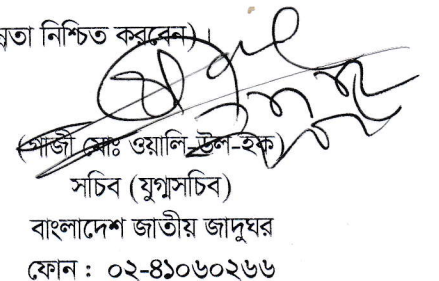 নতা নিশ্চিত করবেন)।
(গাজী মোঃ ওয়ালি-উল-হক)
সচিব (যুগ্মসচিব)
বাংলাদেশ জাতীয় জাদুঘর
ফোন : ০২-৪১০৬০২৬৬